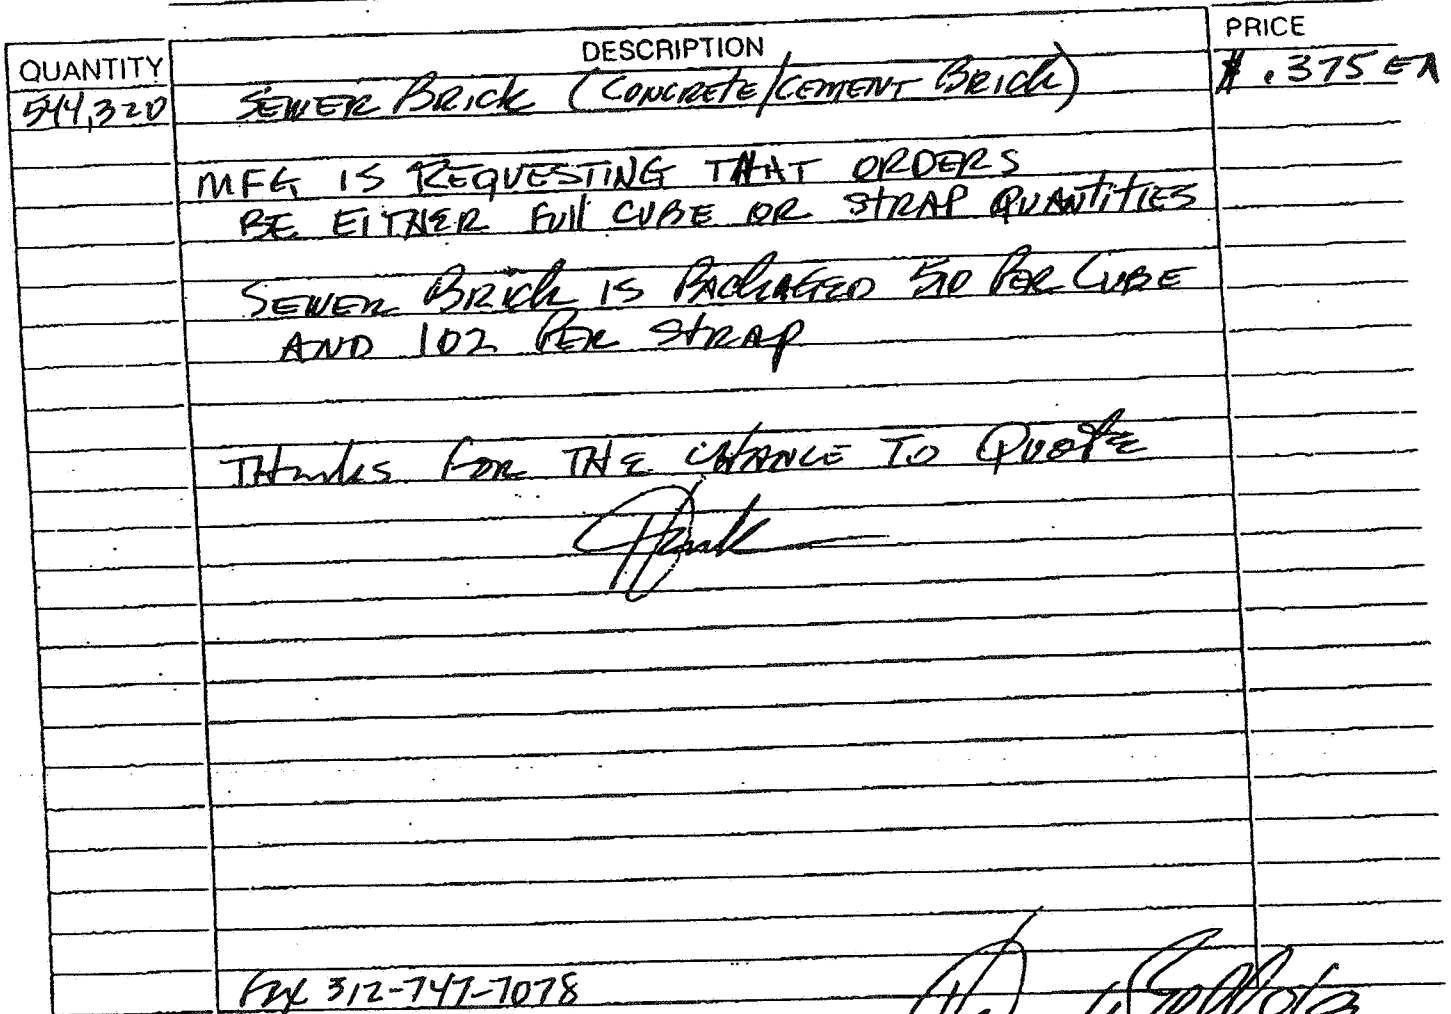 QUANTITY DESCRIPTION PRICE
544,320 SEWER BRICK (CONCRETE/CEMENT BRICK) $ .375 EA
MFG IS REQUESTING THAT ORDERS
BE EITHER FULL CUBE OR STRAP QUANTITIES
SEWER BRICK IS PACKAGED 510 PER CUBE
AND 102 PER STRAP
THANKS FOR THE CHANCE TO QUOTE
Hank
FAX 312-747-7078